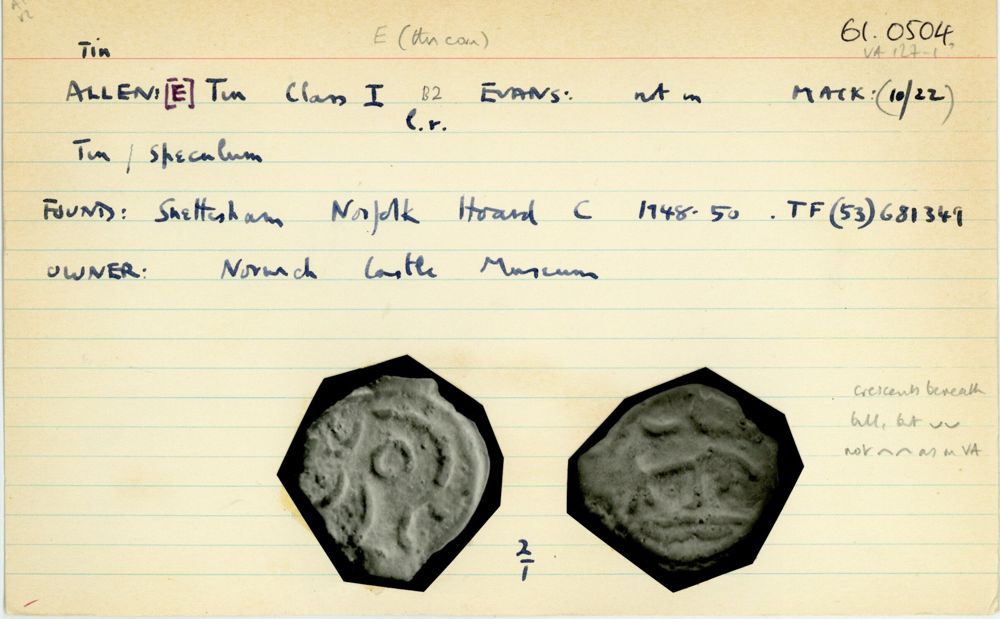 E (thr coin) 61.0504
Tin VA 127-1?
ALLEN: [E] Tin Class I B2 EVANS: not in MACK: (10/22)
l.r.
Tin / speculum
FOUND: Snettisham Norfolk Hoard C 1948-50. TF (53) 681349
OWNER: Norwich Castle Museum
crescents beneath
bull, but ⌣⌣
not ⌢⌢ as in VA
2
1